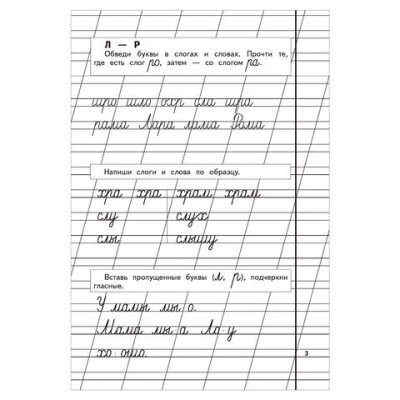 Л — Р
Обведи буквы в слогах и словах. Прочти те,
где есть слог ро, затем — со слогом ра.
шро шло охр сла шра
рама Лара лама Рома
Напиши слоги и слова по образцу.
хра хра храм храм
слу слух
слы слышу
Вставь пропущенные буквы (л, р), подчеркни
гласные.
У мамы мы·о.
Мама мы·а Ло·у
хо·ошо.
3